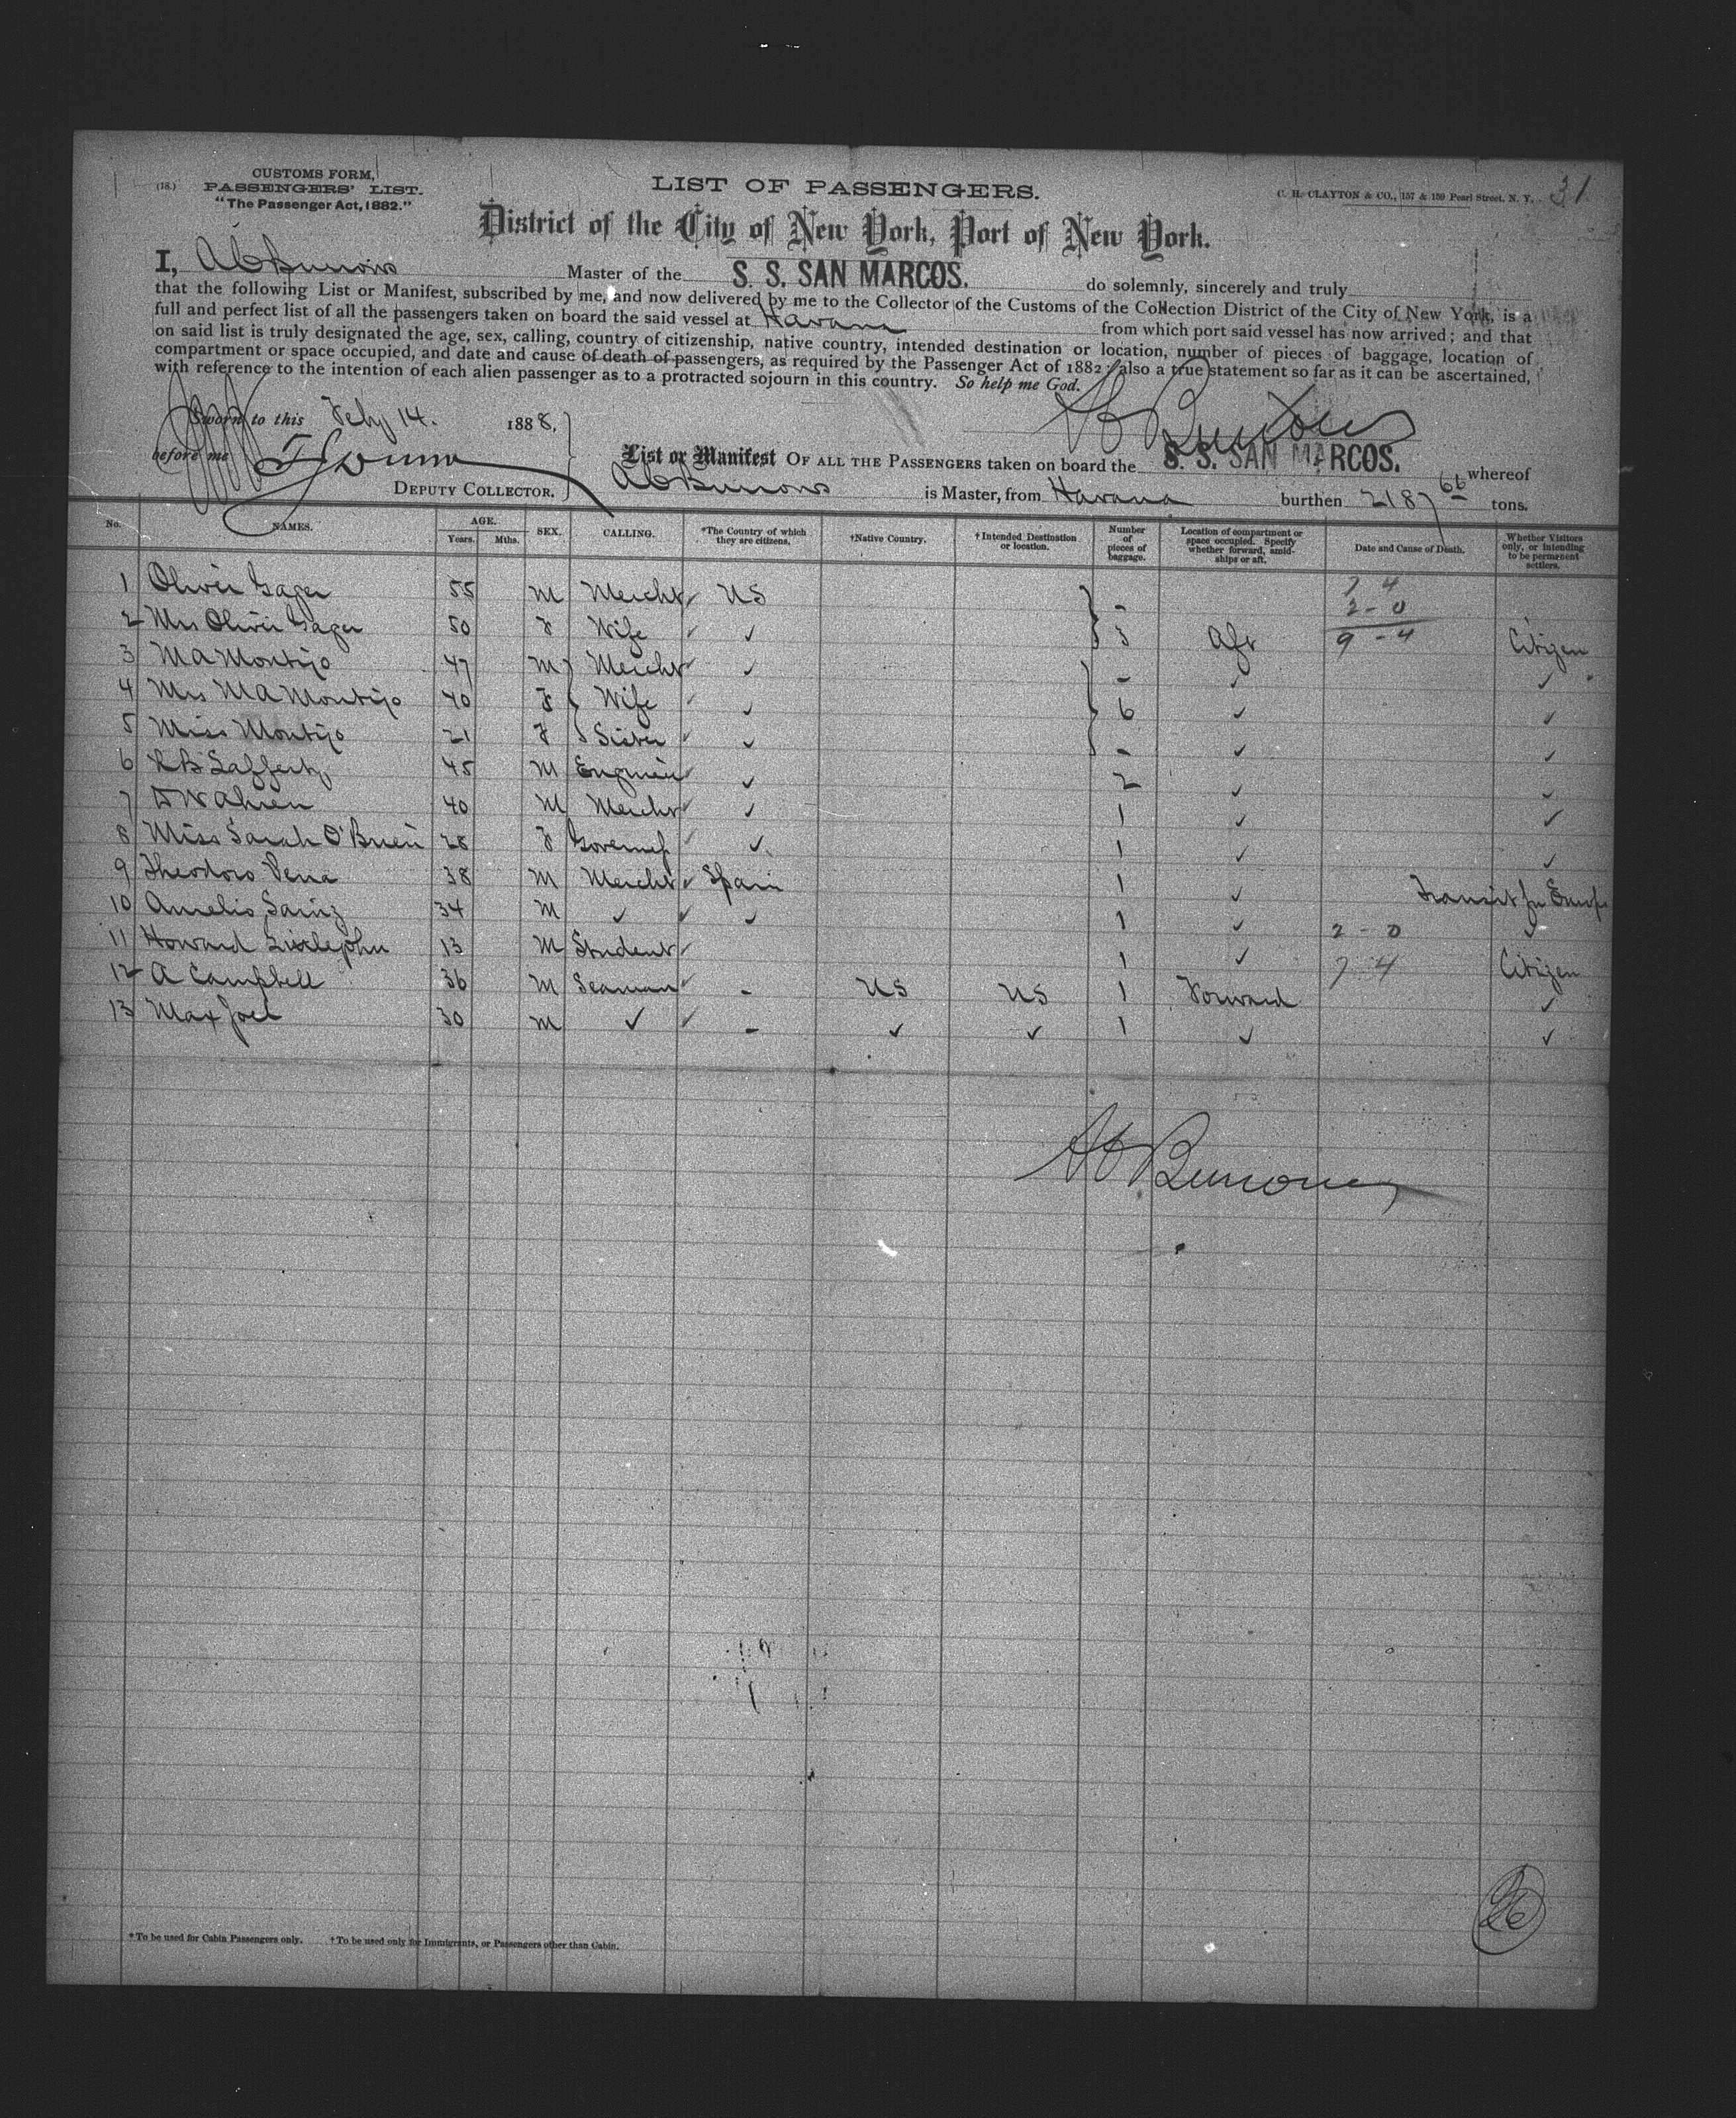 (18.)
CUSTOMS FORM,
PASSENGERS' LIST.
"The Passenger Act, 1882."
LIST OF PASSENGERS.
C. H. CLAYTON & CO., 157 & 159 Pearl Street, N. Y.
31
District of the City of New York, Port of New York.
I, A C Burrows Master of the S. S. SAN MARCOS. do solemnly, sincerely and truly
that the following List or Manifest, subscribed by me, and now delivered by me to the Collector of the Customs of the Collection District of the City of New York, is a
full and perfect list of all the passengers taken on board the said vessel at Havana from which port said vessel has now arrived; and that
on said list is truly designated the age, sex, calling, country of citizenship, native country, intended destination or location, number of pieces of baggage, location of
compartment or space occupied, and date and cause of death of passengers, as required by the Passenger Act of 1882; also a true statement so far as it can be ascertained,
with reference to the intention of each alien passenger as to a protracted sojourn in this country. So help me God.
Sworn to this Feby 14. 1888,
A C Burrows
before me
DEPUTY COLLECTOR.
List or Manifest OF ALL THE PASSENGERS taken on board the S. S. SAN MARCOS. whereof
A C Burrows is Master, from Havana burthen 2187 66 tons.
No. NAMES. AGE. Years. Mths. SEX. CALLING. *The Country of which they are citizens. †Native Country. †Intended Destination or location. Number of pieces of baggage. Location of compartment or space occupied. Specify whether forward, amidships or aft. Date and Cause of Death. Whether Visitors only, or intending to be permanent settlers.
1 Oliver Gager 55 M Mercht US - 7 4
2 - 0
2 Mrs Oliver Gager 50 F Wife ✓ 3 Aft 9 - 4 Citizen
3 M A Montijo 47 M Mercht ✓ - ✓ ✓
4 Mrs M A Montijo 40 F Wife ✓ 6 ✓ ✓
5 Miss Montijo 21 F Sister ✓ - ✓ ✓
6 R B Lafferty 45 M Engineer ✓ 2 ✓ ✓
7 40 M Mercht ✓ 1 ✓ ✓
8 Miss Sarah O'Brien 28 F Governess ✓ 1 ✓ ✓
9 Theodoro Pena 38 M Mercht Spain 1 ✓ Transit for Europe
10 Amelio Sainz 34 M ✓ ✓ 1 ✓ 2 - 0 ✓
11 Howard Littlejohn 13 M Student 1 ✓ 7 4 Citizen
12 A Campbell 36 M Seaman - US US 1 Forward ✓
13 Max Joel 30 M ✓ - ✓ ✓ 1 ✓ ✓
A C Burrows
26
*To be used for Cabin Passengers only. †To be used only for Immigrants, or Passengers other than Cabin.